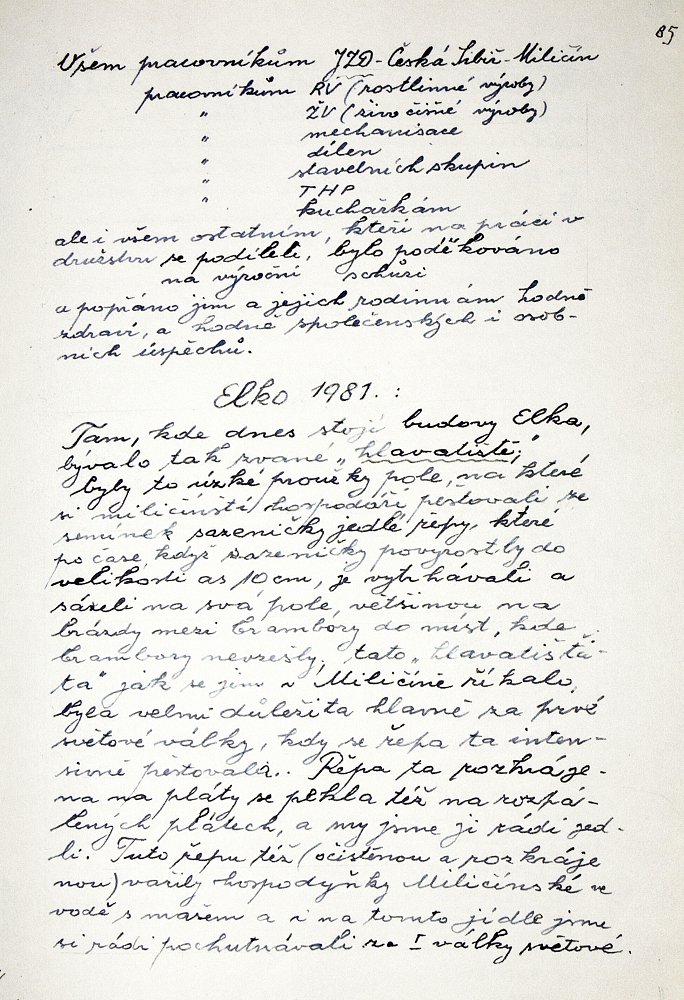 85
Všem pracovníkům JZD-Česká Sibiř-Miličín
pracovníkům RV (rostlinné výroby)
" ŽV (živočišné výroby)
" mechanisace
" dílen
" stavebních skupin
" THP
" kuchařkám
ale i všem ostatním, kteří na práci v
družstvu se podíleli, bylo poděkováno
na výroční schůzi
a popřáno jim a jejich rodinnám hodně
zdraví, a hodně společenských i osob-
ních úspěchů.
Elko 1981. :
Tam, kde dnes stojí budovy Elka,
bývalo tak zvané „hlavatiště;"
byly to úzké proužky pole, na které
si miličínští hospodáři pěstovali ze
semínek sazeničky jedlé řepy, které
po čase, když sazeničky povyrostly do
velikosti as 10 cm, je vytrhávali a
sázeli na svá pole, většinou na
brázdy mezi brambory do míst, kde
brambory nevzešly; tato „hlavatiště-
ta" jak se jim v Miličíně říkalo,
byla velmi důležita hlavně za prvé
světové války, kdy se řepa ta inten-
sivně pěstovala.. Řepa ta rozkráje-
na na pláty se pekla též na rozpá-
lených plátech, a my jsme ji rádi jed-
li. Tuto řepu též (očistěnou a rozkráje
nou) vařily hospodyňky Miličínské ve
vodě s mašem a i na tomto jídle jsme
si rádi pochutnávali za I války světové.